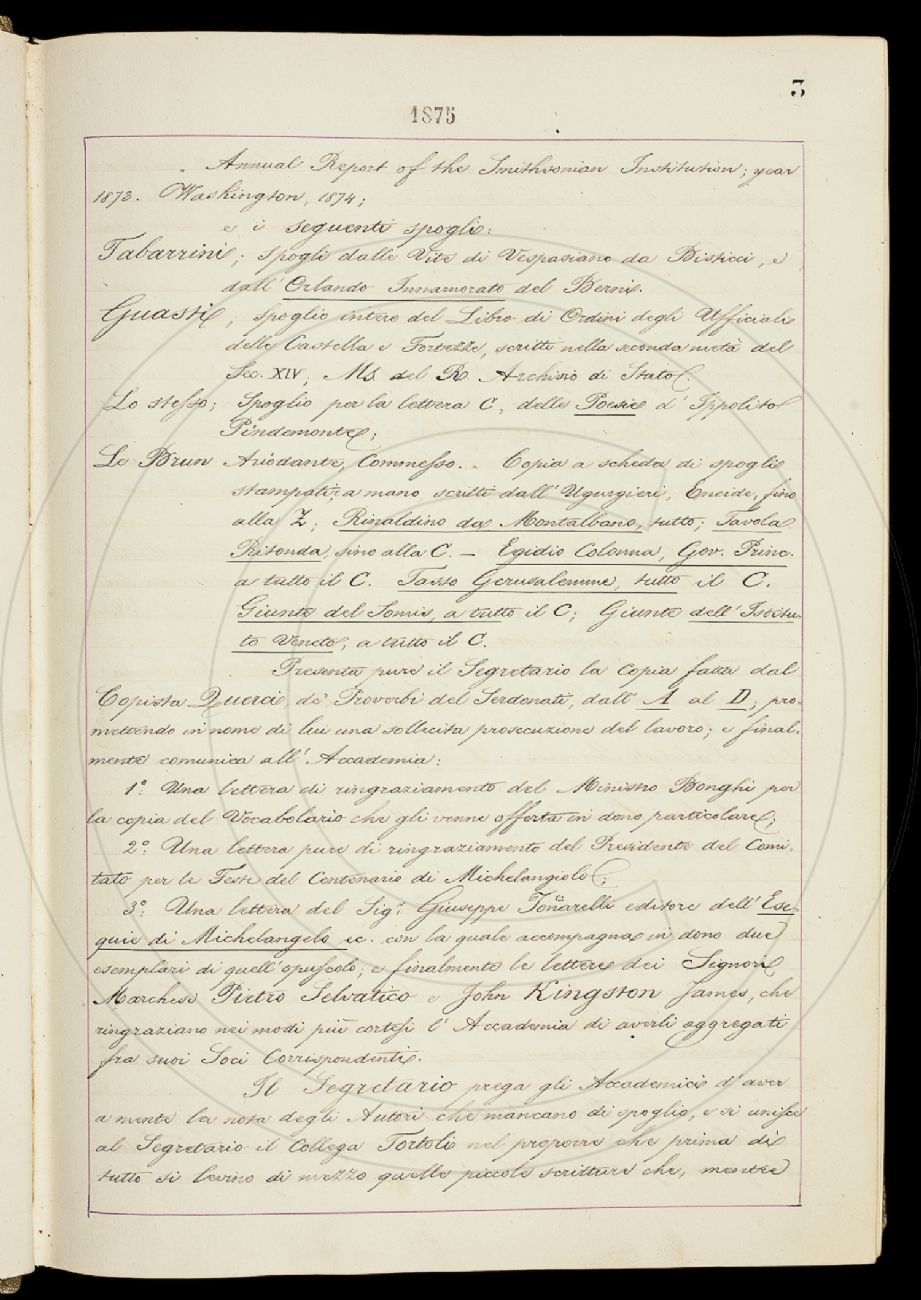 3
1875
„ Annual Report of the Smithsonian Institution; year
1873. Washington, 1874;
e i seguenti spogli:
Tabarrini; Spogli dalle Vite di Vespasiano da Bisticci, e
dall' Orlando Innamorato del Berni.
Guasti; Spoglio intero del Libro di Ordini degli Ufficiali
delle Castella e Fortezze, scritti nella seconda metà del
Sec. XIV; Ms. del R. Archivio di Stato.
Lo stesso; Spoglio per la lettera C, delle Poesie d' Ippolito
Pindemonte;
Le Brun Ariodante, Commesso. _ Copia a scheda di spogli
stampati; a mano, scritti dall' Ugurgieri, Eneide, fino
alla Z; Rinaldino da Montalbano, tutto; Tavola
Ritonda, sino alla C. _ Egidio Colonna, Gov. Princ.
a tutto il C. Tasso Gerusalemme, tutto il C.
Giunte del Somis, a tutto il C; Giunte dell' Istitu-
to Veneto; a tutto il C.
Presenta pure il Segretario la copia fatta dal
Copista Querci, de' Proverbi del Serdonati, dall' A al D; pro-
mettendo in nome di lui una sollecita prosecuzione del lavoro; e final-
mente comunica all' Accademia:
1.° Una lettera di ringraziamento del Ministro Bonghi per
la copia del Vocabolario che gli venne offerta in dono particolare;
2.° Una lettera pure di ringraziamento del Presidente del Comi-
tato per le Feste del Centenario di Michelangiolo;
3.° Una lettera del Sig.r Giuseppe editore dell' Ese-
quie di Michelangelo ec. con la quale accompagna in dono due
esemplari di quell' opuscolo; e finalmente le lettere dei Signori
Marchese Pietro Selvatico e John Kingston James, che
ringraziano nei modi più cortesi l' Accademia di averli aggregati
fra suoi Soci Corrispondenti.
Il Segretario prega gli Accademici d' aver
a mente la nota degli Autori che mancano di spoglio, e si unisce
al Segretario il Collega Tortoli nel proporre che prima di
tutto si levino di mezzo quelle piccole scritture che, mentre